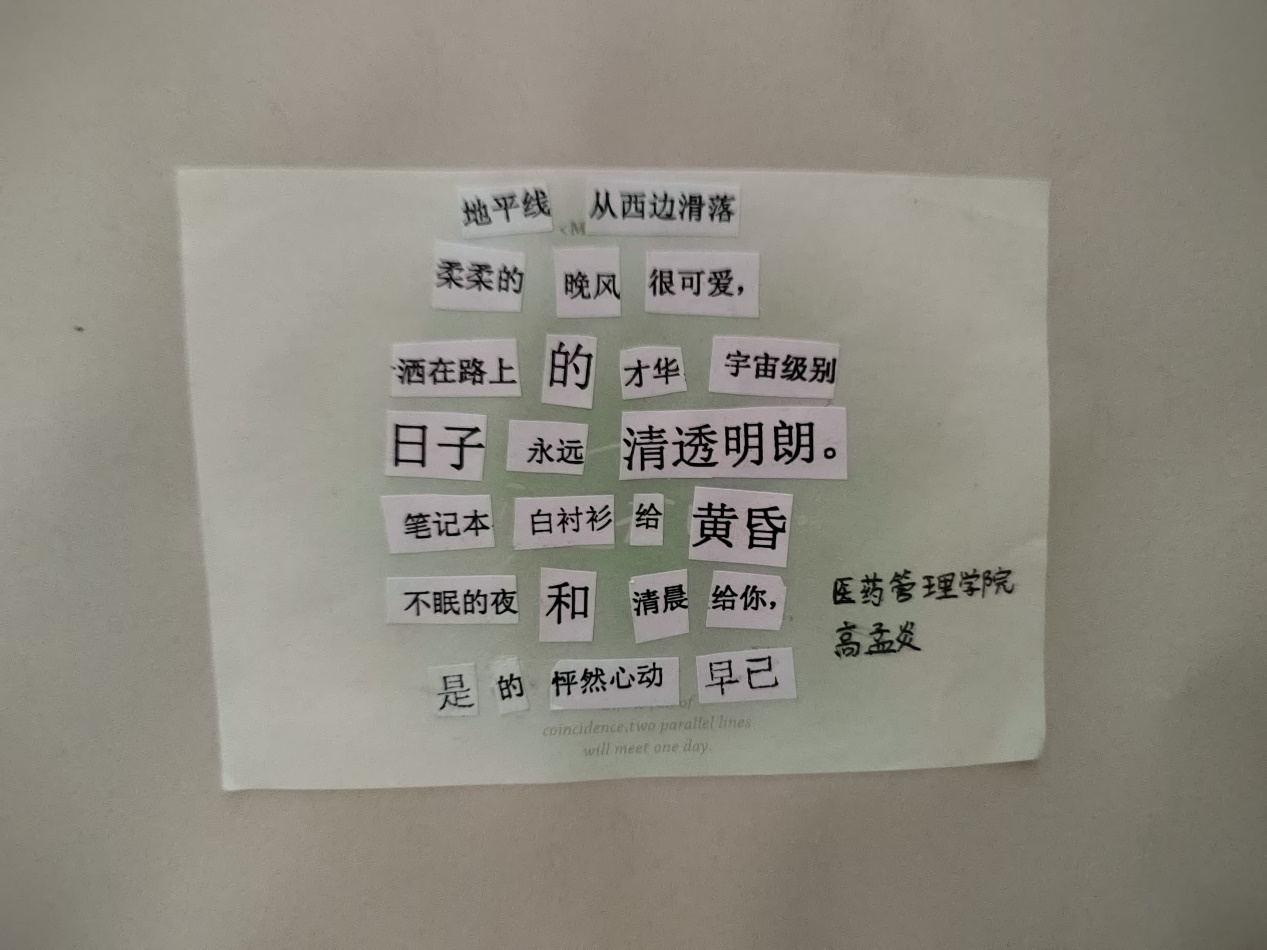 地平线 从西边滑落
<M
柔柔的 晚风 很可爱，
洒在路上 的 才华 宇宙级别
日子 永远 清透明朗。
笔记本 白衬衫 给 黄昏
不眠的夜 和 清晨 给你，
医药管理学院
高孟炎
是 的 怦然心动 早已
of
coincidence,two parallel lines
will meet one day.